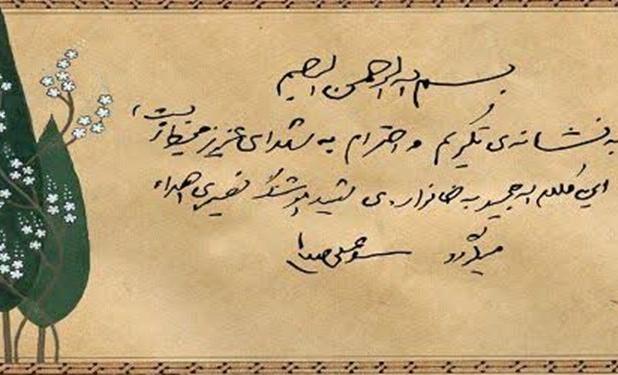 بسم الله الرحمن الرحیم
به نشانه‌ی تکریم و احترام به شهدای عزیز محیط زیست،
این کلام اله مجید به خانواده‌ی شهید هوشنگ نصیری اهداء
میگردد